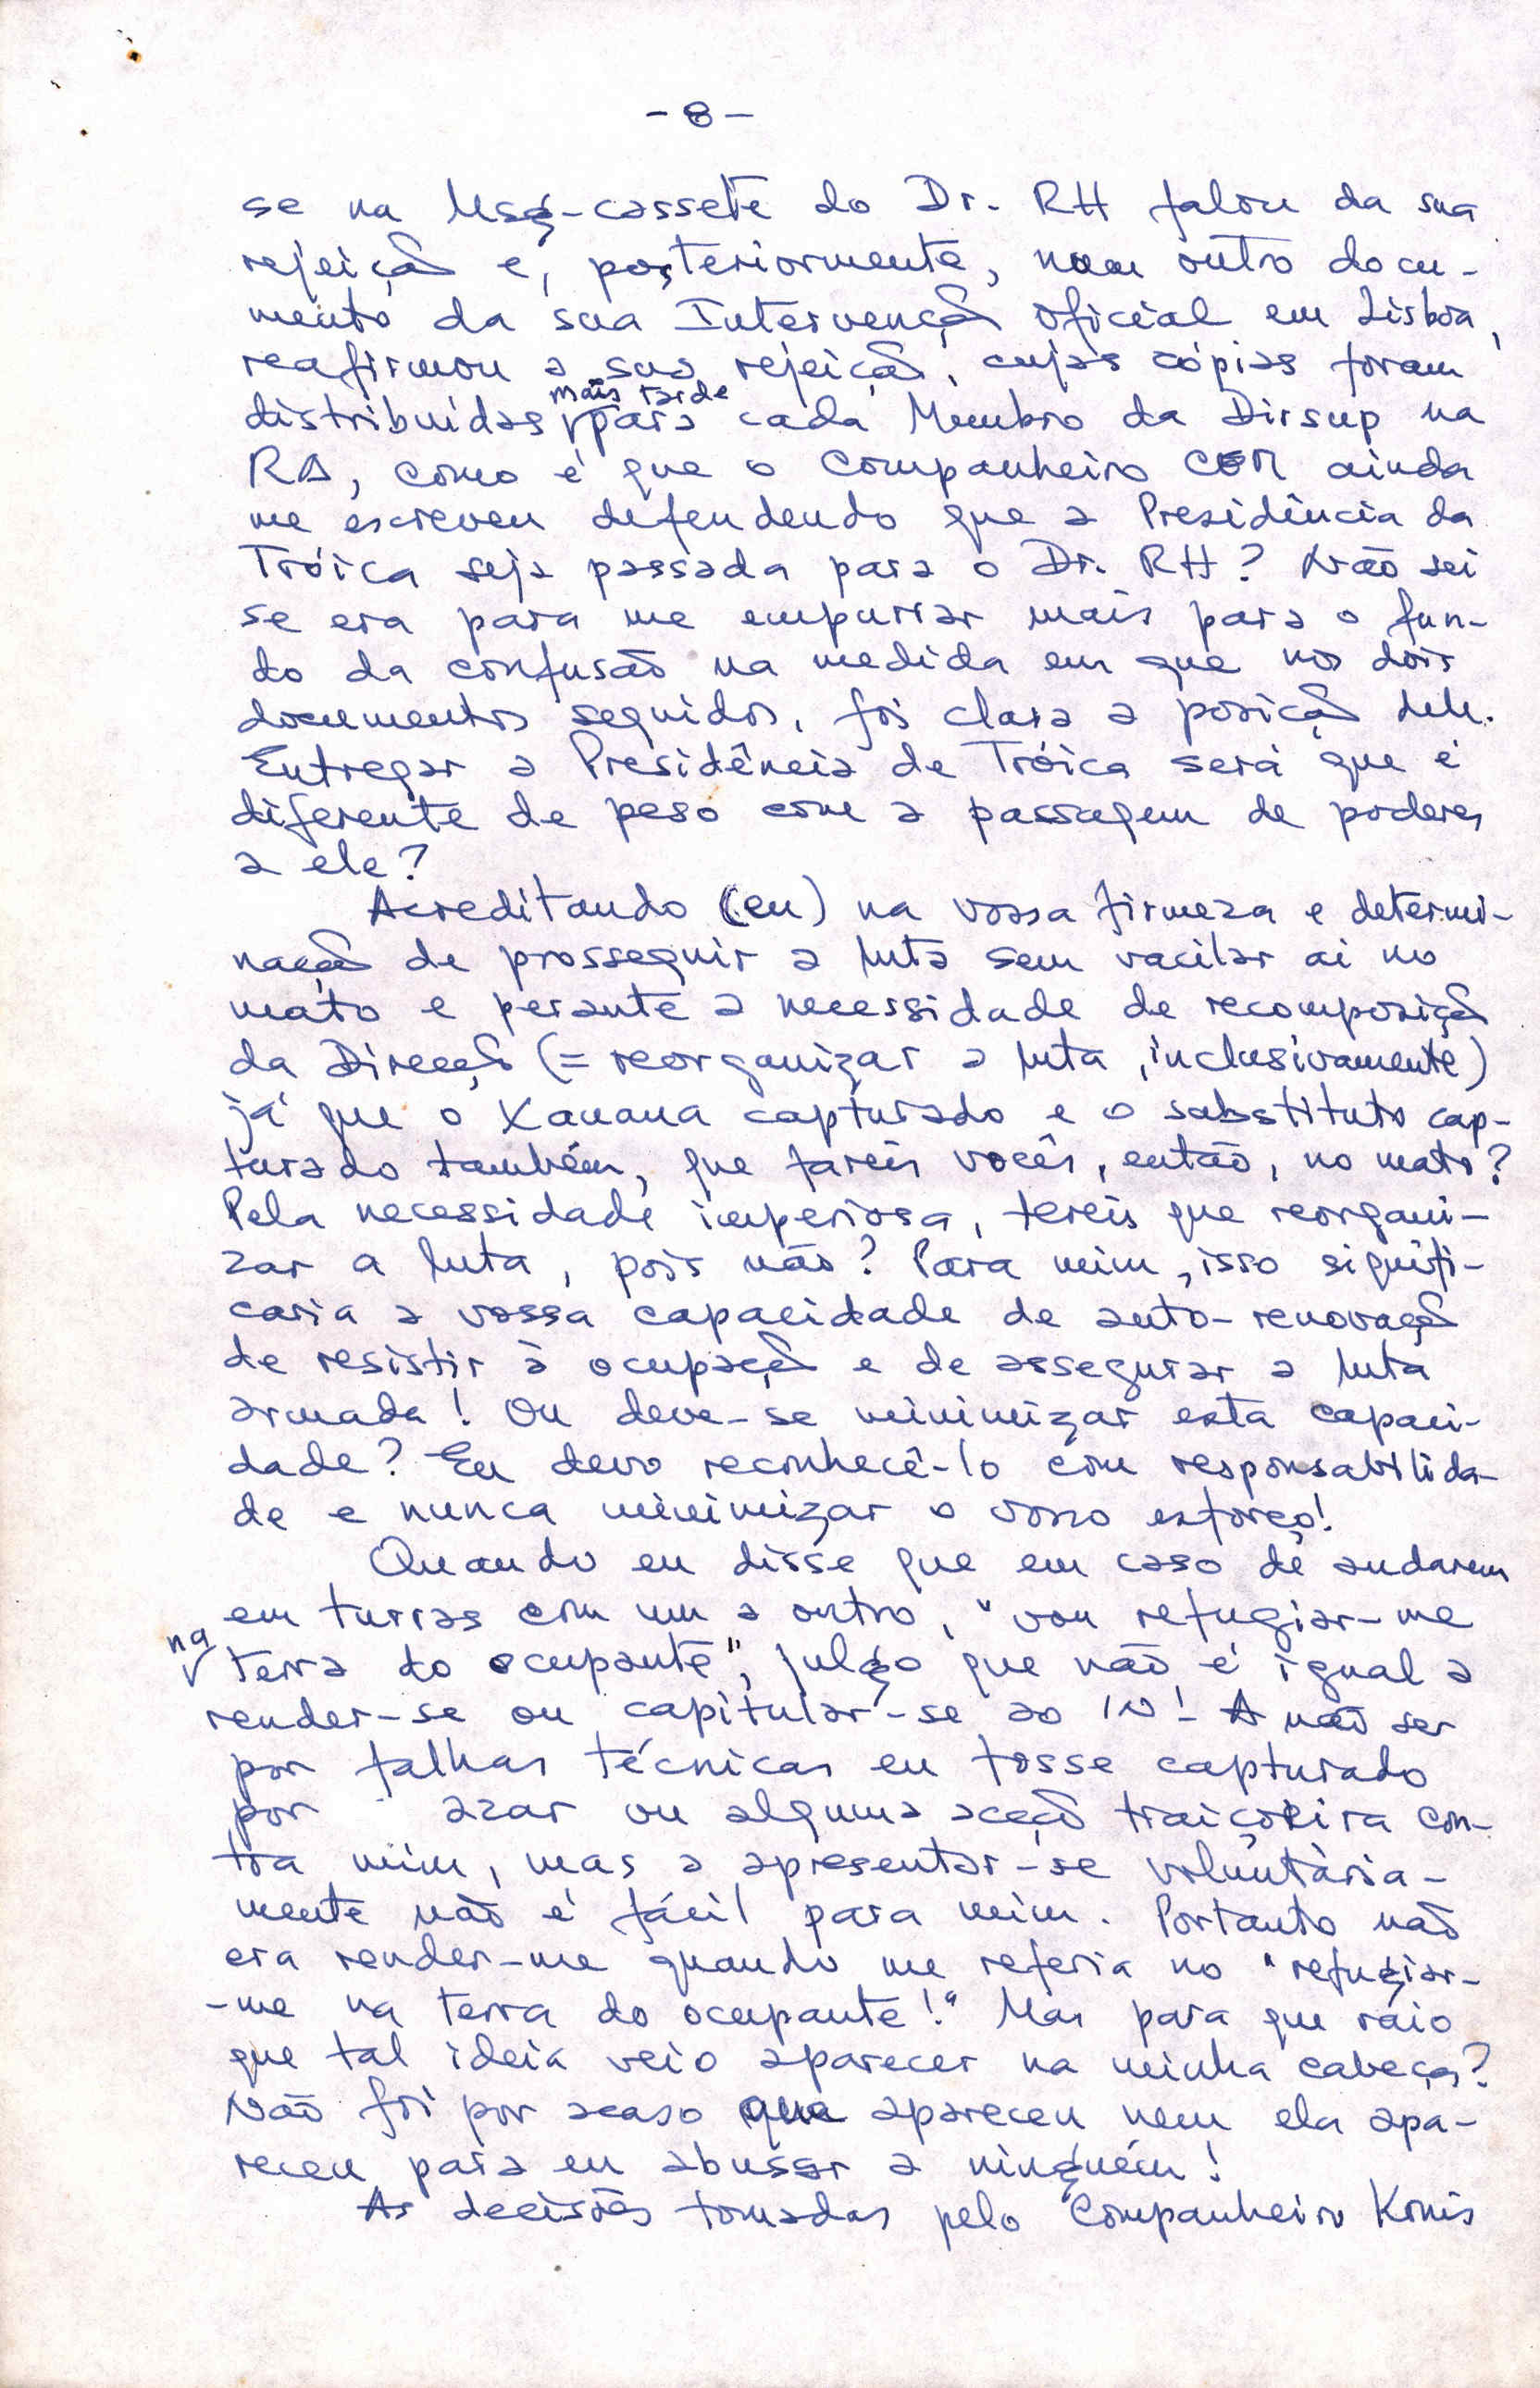 - 8 -
se na Msg-cassete do Dr. RH falou da sua
rejeição e, posteriormente, num outro docu-
mento da sua Intervenção oficial em Lisboa,
reafirmou a sua rejeição, cujas cópias foram
distribuídas mais tarde para cada Membro da Dirsup na
RA, como é que o Companheiro COR ainda
me escreveu defendendo que a Presidência da
Tróica seja passada para o Dr. RH? Não sei
se era para me empurrar mais para o fun-
do da confusão na medida em que nos dois
documentos seguidos, foi clara a posição dele.
Entregar a Presidência de Tróica será que é
diferente de peso com a passagem de poderes
a ele?
Acreditando (eu) na vossa firmeza e determi-
nação de prosseguir a luta sem vacilar ai no
mato e perante a necessidade de recomposição
da Direcção (= reorganizar a luta, inclusivamente)
já que o Xanana capturado e o substituto cap-
turado também, que fareis vocês, então, no mato?
Pela necessidade imperiosa, tereis que reorgani-
zar a luta, pois não? Para mim, isso signifi-
caria a vossa capacidade de auto-renovação
de resistir à ocupação e de assegurar a luta
armada! Ou deve-se minimizar esta capaci-
dade? Eu devo reconhecê-lo com responsabilida-
de e nunca minimizar o vosso esforço!
Quando eu disse que em caso de andarem
em turras com um a outro, "vou refugiar-me
na terra do ocupante", julgo que não é igual a
render-se ou capitular-se ao IN! A não ser
por falhas técnicas eu fosse capturado
por azar ou alguma acção traiçoeira con-
tra mim, mas a apresentar-se voluntária-
mente não é fácil para mim. Portanto não
era render-me quando me referia no "refugiar-
-me na terra do ocupante!" Mas para que raio
que tal ideia veio aparecer na minha cabeça?
Não foi por acaso que apareceu nem ela apa-
receu para eu abusar a ninguém!
As decisões tomadas pelo Companheiro Konis